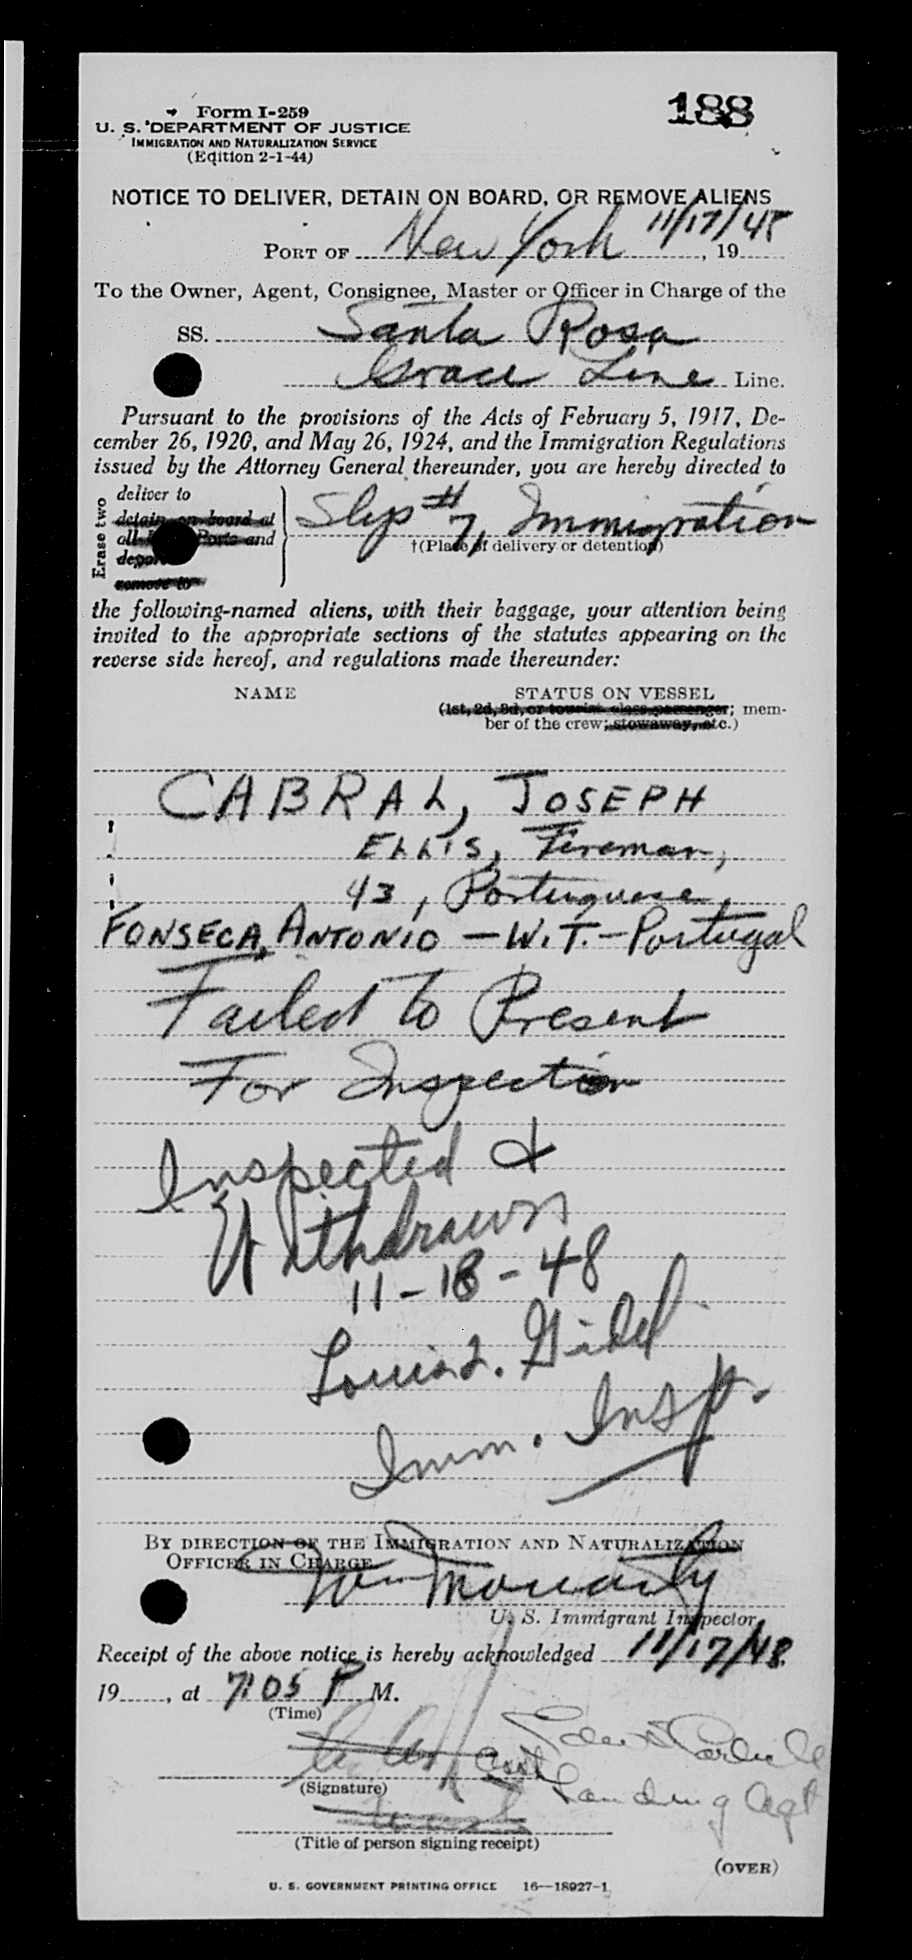 188
Form I-259
U. S. DEPARTMENT OF JUSTICE
IMMIGRATION AND NATURALIZATION SERVICE
(Edition 2-1-44)
NOTICE TO DELIVER, DETAIN ON BOARD, OR REMOVE ALIENS
PORT OF New York 11/17/48, 19
To the Owner, Agent, Consignee, Master or Officer in Charge of the
SS. Santa Rosa
Grace Line Line.
Pursuant to the provisions of the Acts of February 5, 1917, De-
cember 26, 1920, and May 26, 1924, and the Immigration Regulations
issued by the Attorney General thereunder, you are hereby directed to
Erase two
deliver to
detain on board at
all Ports and
remove to
Slip # 7, Immigration
†(Place of delivery or detention)
the following-named aliens, with their baggage, your attention being
invited to the appropriate sections of the statutes appearing on the
reverse side hereof, and regulations made thereunder:
NAME STATUS ON VESSEL
(1st, 2d, 3d, or tourist class passenger; mem-
ber of the crew; stowaway, etc.)
CABRAL, JOSEPH
ELLIS, Fireman,
43, Portuguese,
FONSECA, ANTONIO - W.T. - Portugal
Failed to Present
For Inspection
Inspected &
Withdrawn
11-18-48
Louis
Imm. Insp.
BY DIRECTION OF THE IMMIGRATION AND NATURALIZATION
OFFICER IN CHARGE
Moriarty
U. S. Immigrant Inspector
Receipt of the above notice is hereby acknowledged 11/17/48
19, at 7:05 P M.
(Time)
Asst Landing Agt
(Signature)
(Title of person signing receipt)
(OVER)
U. S. GOVERNMENT PRINTING OFFICE 16—18927-1